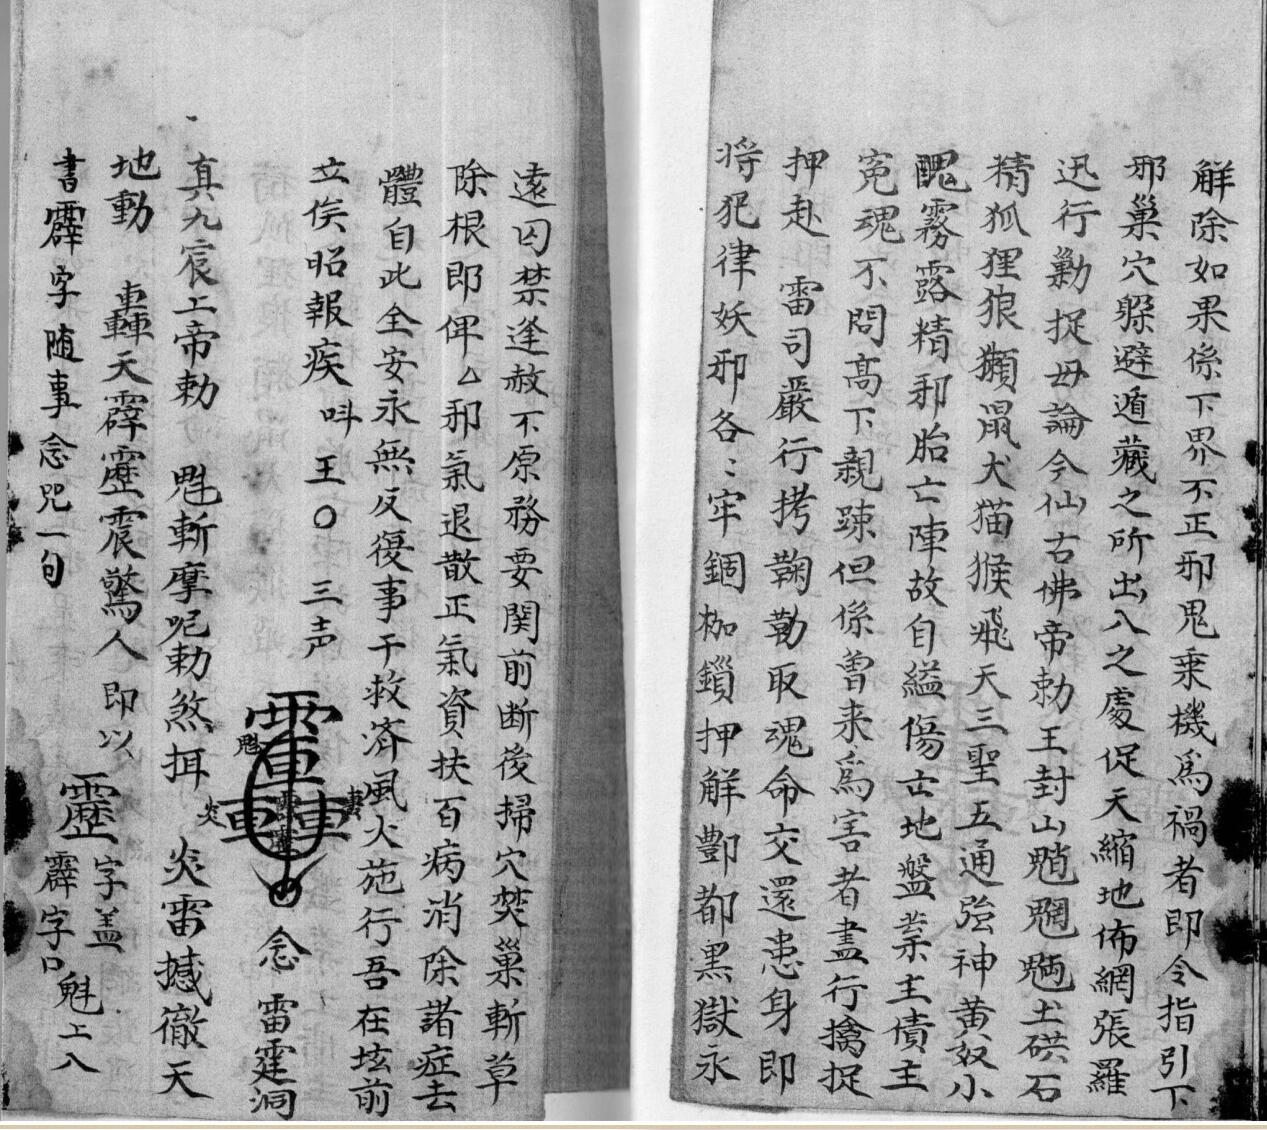 解除如果係下界不正邪鬼乗機為禍者即令指引下
邪巢穴躱避遁藏之所出入之處促天縮地佈網張羅
迅行勦捉毋論今仙古佛帝勅王封山魈魍魎土硔石
精狐狸狼獺鼠犬猫猴飛天三聖五通強神黃奴小
醜霧露精邪胎亡陣故自縊傷亡地盤業主債主
冤魂不問高下親疎但係曽来為害者盡行擒捉
押赴　雷司嚴行拷鞠勒取魂命交還患身即
将犯律妖邪各〻牢錮枷鎖押解酆都黑獄永
遠囚禁逢赦不原務要関前断後掃穴焚巢斬草
除根即俾厶邪氣退散正氣資扶百病消除諸症去
體自此全安永無反復事干救済風火施行吾在坛前
立俟昭報疾　呌　王〇三声
念雷霆洞
真九宸上帝勅　魁斬摩呢勅煞挕　炎雷撼徹天
地動　轟天霹靂震驚人　即以　靂字盖魁上八
書霹字随事念咒一句　霹字口